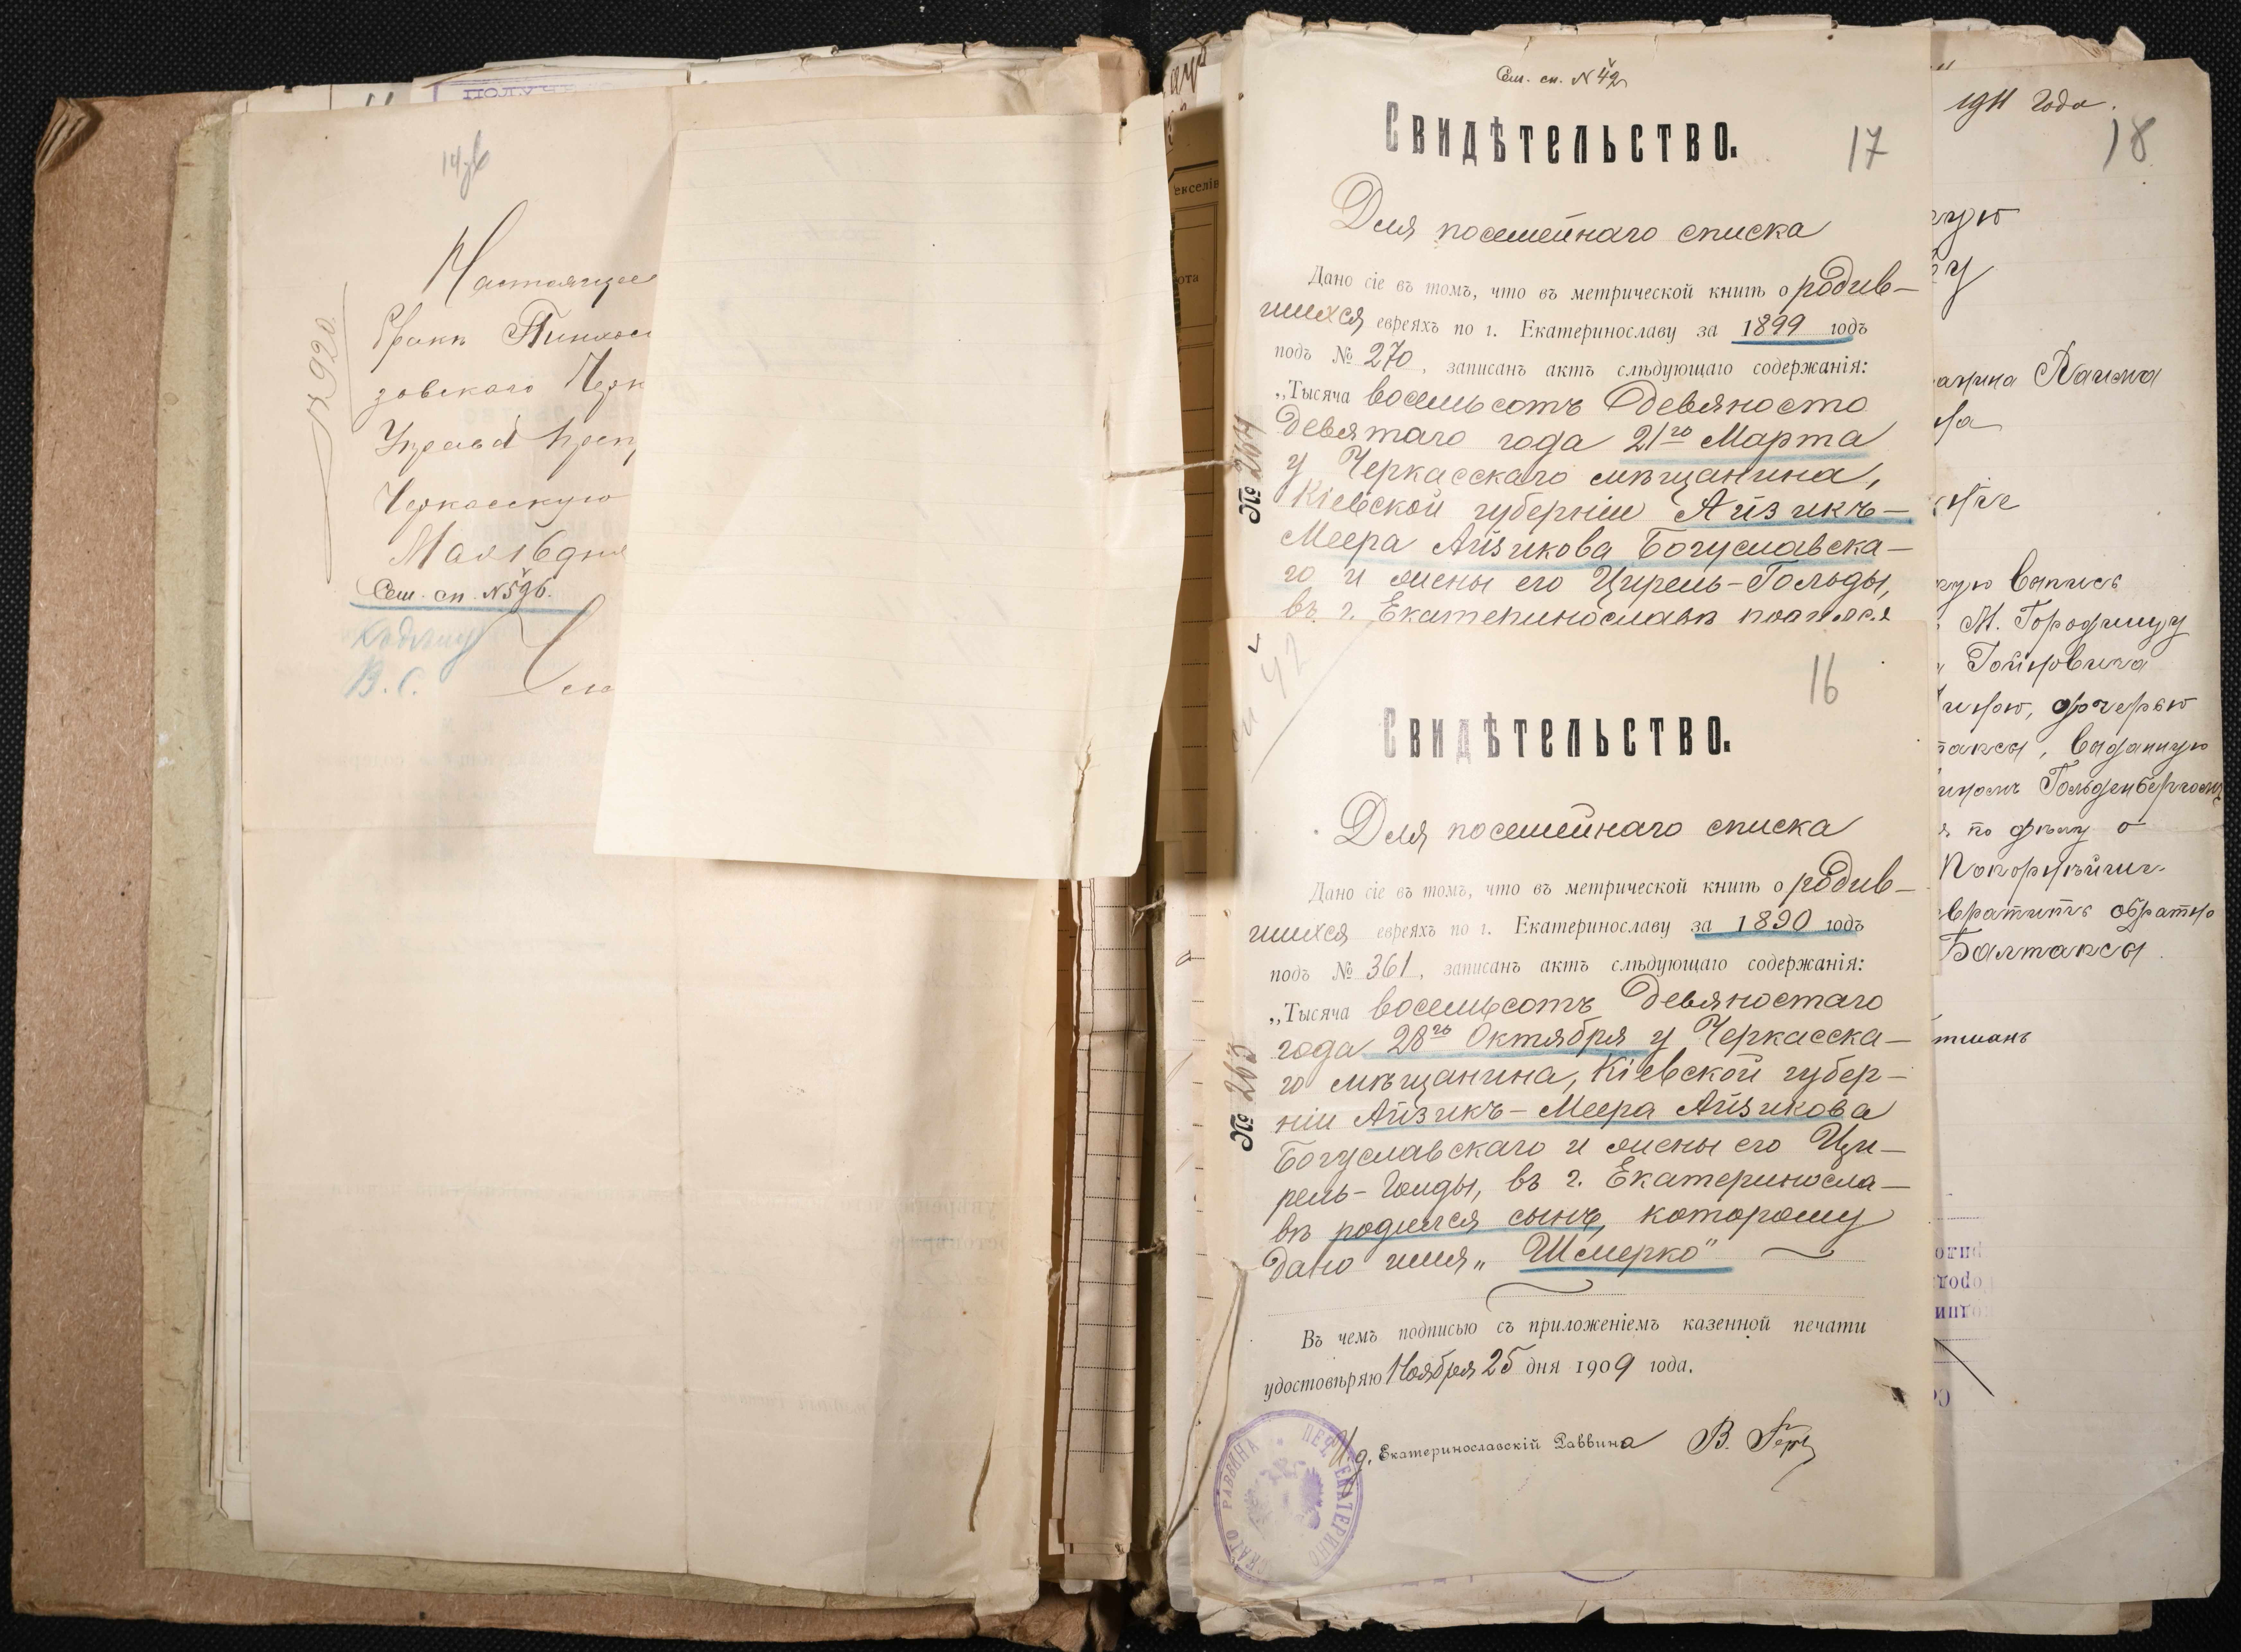 14 об
№ 920
Настоящее
бракѣ Пинхоса
зовскаго Черк
Управа преп
Черкасскую
Мая 16 дня
Сем. сп. № 596.
Кодкину
В. С.
екселів
ота
Сем. сп. № 42
Свидѣтельство.
17
Для посемейнаго списка
Дано сіе въ томъ, что въ метрической книгѣ о родив-
шихся евреяхъ по г. Екатеринославу за 1899 годъ
подъ № 270, записанъ актъ слѣдующаго содержанія:
„Тысяча восемьсотъ девяносто
девятаго года 21го Марта
у Черкасскаго мѣщанина,
Кіевской губерніи Айзикъ-
Меера Айзикова Богуславска-
го и жены его Цирель-Гольды,
въ г. Екатеринославѣ родился
№ 264
42
16
Свидѣтельство.
Для посемейнаго списка
Дано сіе въ томъ, что въ метрической книгѣ о родив-
шихся евреяхъ по г. Екатеринославу за 1890 годъ
подъ № 361, записанъ актъ слѣдующаго содержанія:
„Тысяча восемьсотъ девяностаго
года 28го Октября у Черкасска-
го мѣщанина, Кіевской губер-
ніи Айзикъ-Меера Айзикова
Богуславскаго и жены его Ци-
рель-Голды, въ г. Екатериносла-
вѣ родился сынъ, которому
дано имя „Шмерко"
№ 263
Въ чемъ подписью съ приложеніемъ казенной печати
удостовѣряю Ноября 25 дня 1909 года.
И д. Екатеринославскій Раввина В.
ПЕЧ. ЕКАТЕРИНО
СКАГО РАВВИНА
1911 года.
18
анина Хаима
ную выпись
М. Городищу
Гойновича
иною, дочерью
такса, выданную
Гольденбергомъ
по дѣлу о
Покорнѣйше
вратить обратно
Балтакса
тманъ